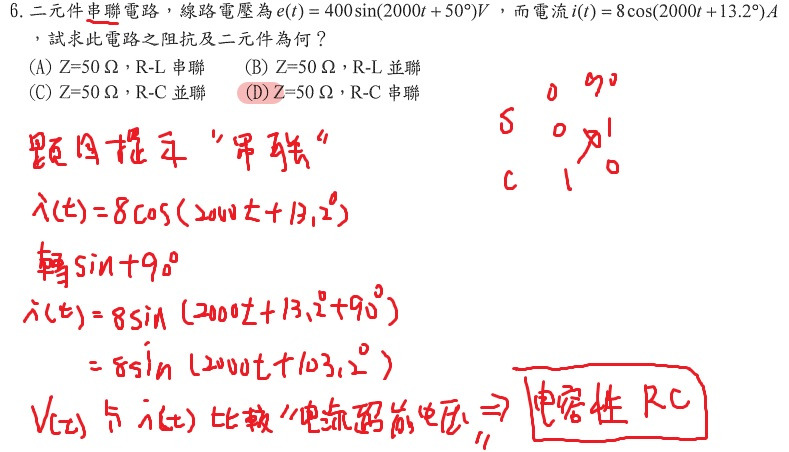 6. 二元件串聯電路，線路電壓為 e(t) = 400sin(2000t + 50°)V ，而電流 i(t) = 8cos(2000t + 13.2°)A
，試求此電路之阻抗及二元件為何？
(A) Z=50 Ω，R-L 串聯 (B) Z=50 Ω，R-L 並聯
(C) Z=50 Ω，R-C 並聯 (D) Z=50 Ω，R-C 串聯
0 90
S 0 1
C 1 0
題目提示 "串聯"
i(t) = 8cos(2000t + 13.2°)
轉 sin + 90°
i(t) = 8sin (2000t + 13.2° + 90°)
= 8sin (2000t + 103.2°)
V(t) 与 i(t) 比較 "电流超前电压" ⇒ 电容性 RC